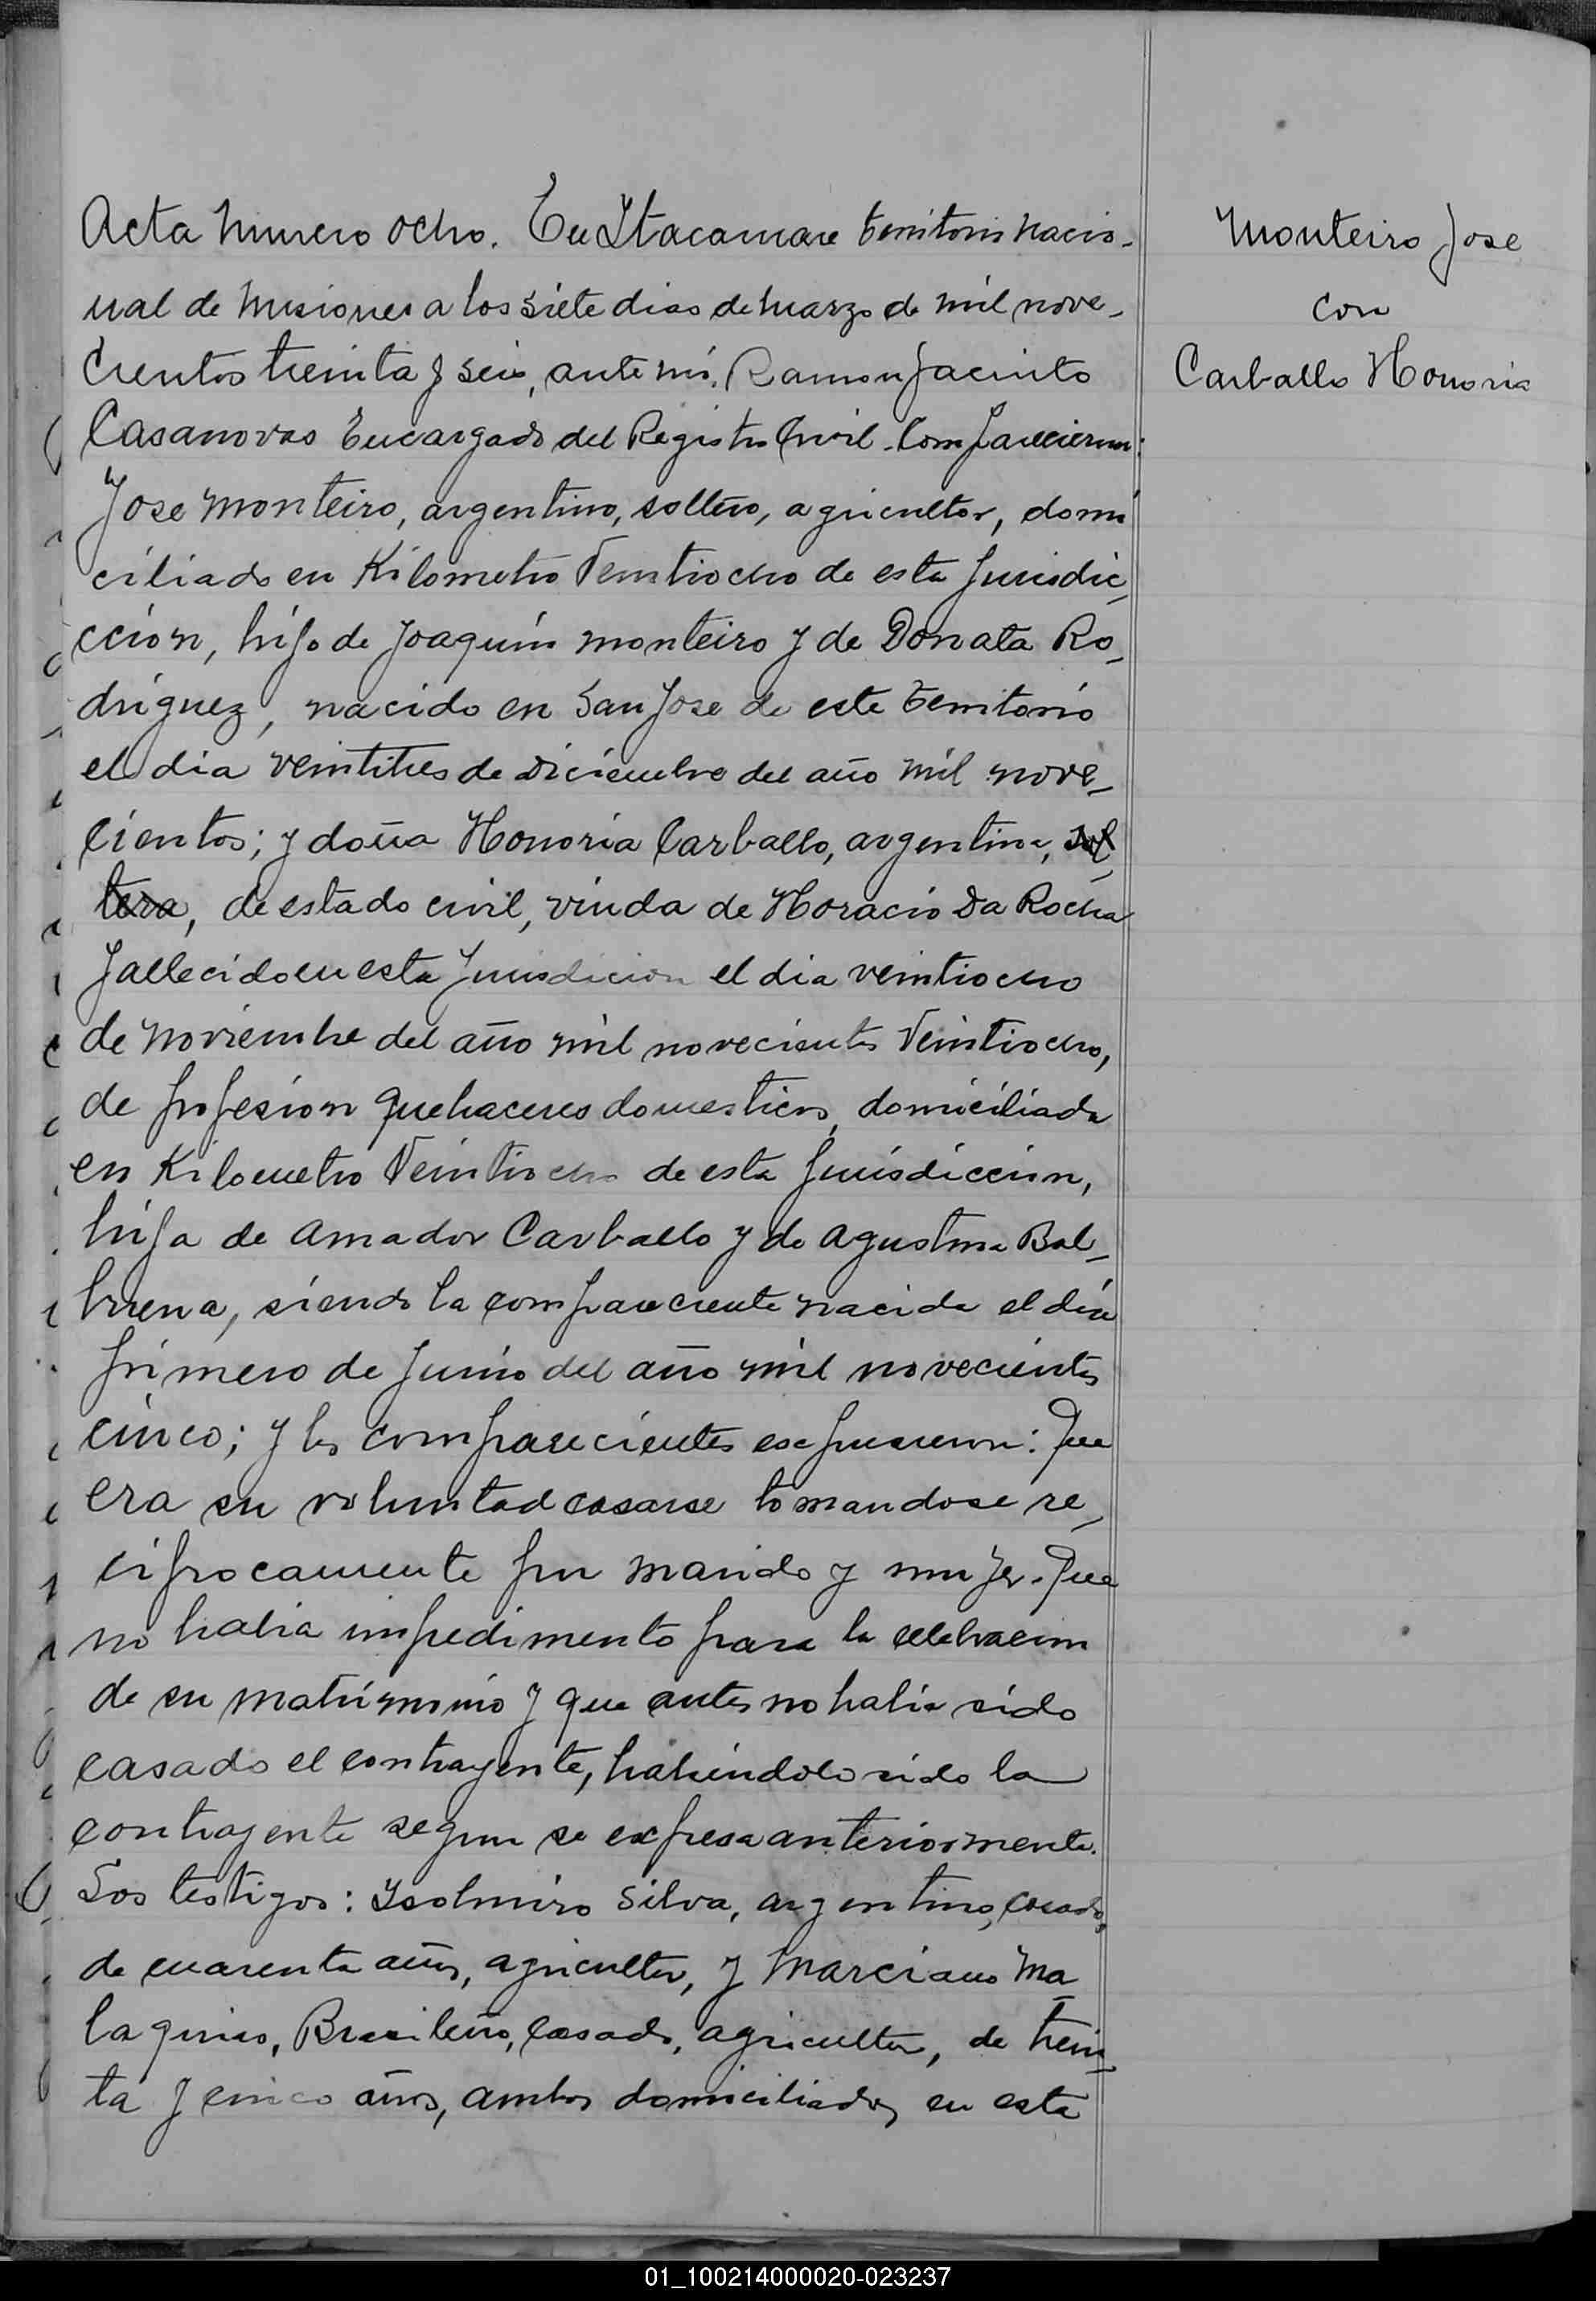 Acta Numero ocho. En Itacaruare territorio Nacio-
nal de Misiones a los siete dias de Marzo de mil nove-
cientos treinta y seis, ante mi, Ramon Jacinto
Casanovas Encargado del Registro Civil. Comparecieron:
Jose Monteiro, argentino, soltero, agricultor, domi
ciliado en Kilometro Veintiocho de esta Jurisdic-
cción, hijo de Joaquin Monteiro y de Donata Ro-
driguez, nacido en San Jose de este territorio
el dia veintitres de Diciembre del año mil nove-
cientos; y doña Honoria Carballo, argentina, sol-
tera, de estado civil, viuda de Horacio Da Rocha
fallecido en esta Jurisdicion el dia veintiocho
de Noviembre del año mil novecientos Veintiocho,
de profesion quehaceres domesticos, domiciliada
en Kilometro Veintiocho de esta Jurisdiccion,
hija de Amador Carballo y de Agustina Bal-
buena, siendo la compareciente nacida el dia
primero de Junio del año mil novecientos
cinco; y los comparecientes expusieron: Que
era su voluntad casarse tomandose re-
ciprocamente por marido y mujer. Que
no habia impedimento para la celebracion
de su matrimonio y que antes no habia sido
casado el contrayente, habiendolo sido la
contrayente segun se expresa anteriormente.
Los testigos: Ysolmiro Silva, argentino, casado,
de cuarenta años, agricultor, y Marciano Ma-
laquias, Brasileño, casado, agricultor, de trein-
ta y cinco años, ambos domiciliados en esta
Monteiro Jose
con
Carballo Honoria
01_100214000020-023237